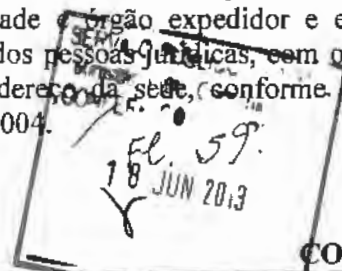 ade e órgão expedidor e e
SER
dos pessoas jurídicas, com o
dereço da sede, conforme
004.
Fl. 59.
18 JUN 2013
CO